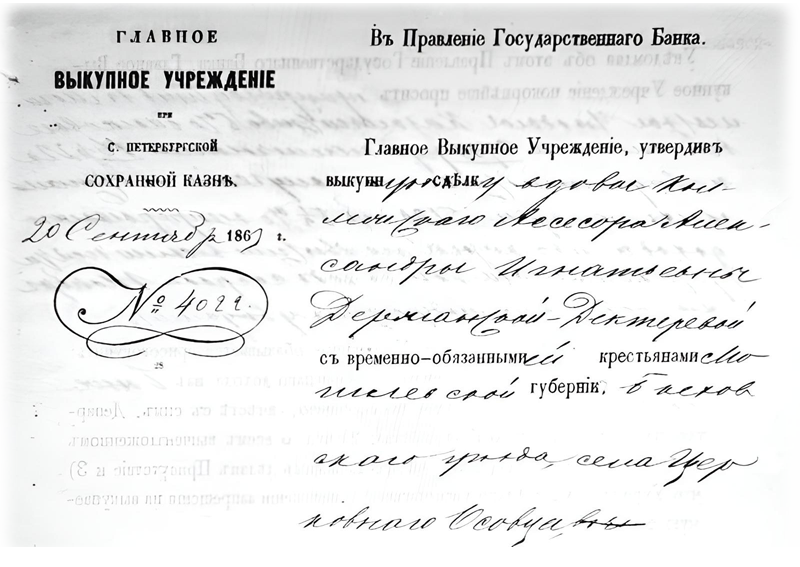 ГЛАВНОЕ
ВЫКУПНОЕ УЧРЕЖДЕНІЕ
ПРИ
С. ПЕТЕРБУРГСКОЙ
СОХРАННОЙ КАЗНѢ.
20 Сентябр 1867 г.
№ 4022.
28
Въ Правленіе Государственнаго Банка.
Главное Выкупное Учрежденіе, утвердивъ
выкупную сдѣлку вдовы Кол-
Ассесора Алек-
сандры Игнатьевны
Держанской-Дектеревой
съ временно-обязанными крестьянами Мо
гилевской губерніи, Быхов
скаго уѣзда, села Цер
ковнаго Осовца